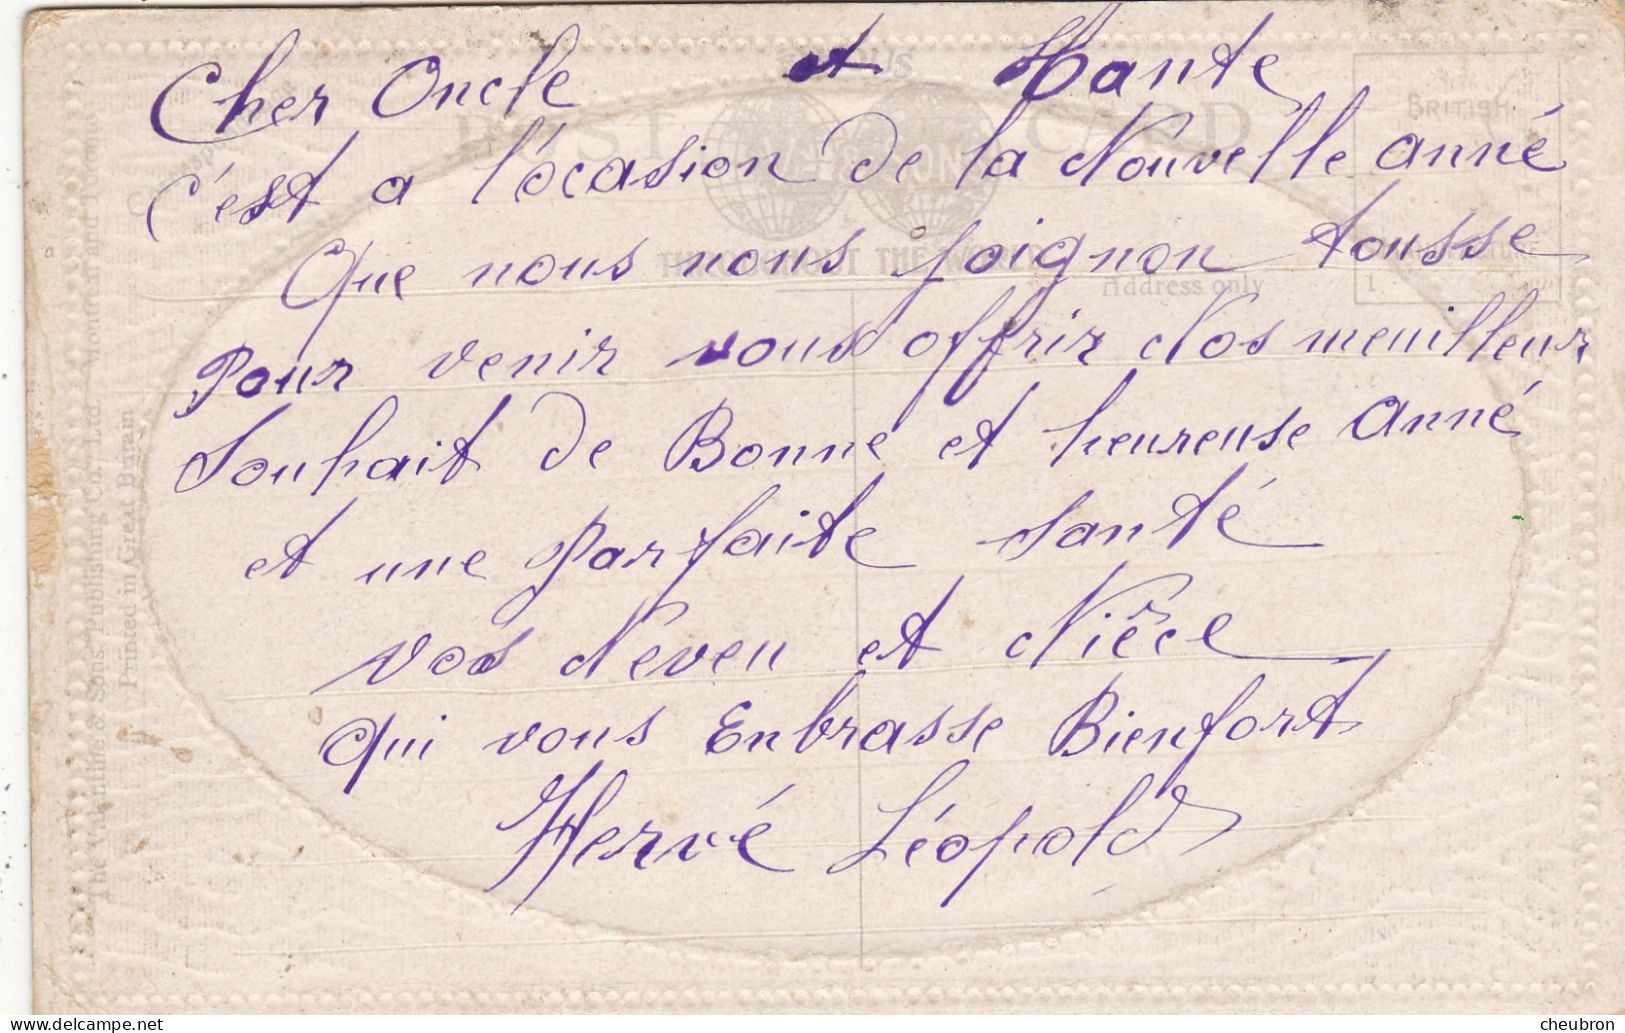 Cher Oncle et Tante
c'est a l'ocasion de la Nouvelle anné
Que nous nous joignon tousse
Pour venir vous offrir Nos meuilleur
Souhait de Bonne et heureuse Anné
et une Parfaite santé
Vos Neveu et Nièce
Qui vous Enbrasse Bienfort
Hervé Léopold
POST CARD
THE WORLD
Address only
BRITISH
The Valentine & Sons Publishing Co. Ltd. Montreal and Toronto
Printed in Great Britain
delcampe.net
cheubron